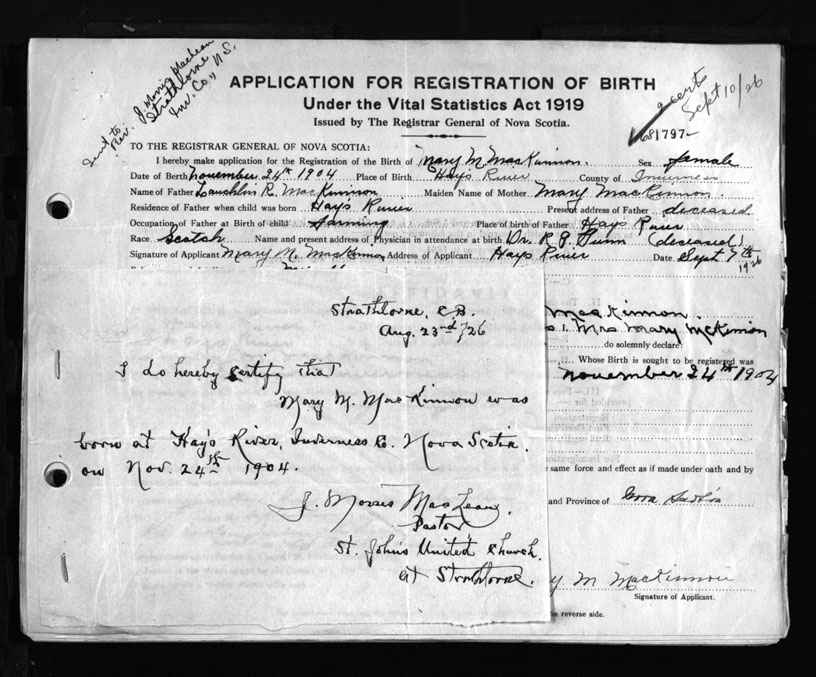 Send to
Rev. J Morris MacLean
Strathlorne
Inv. Co., N.S.
APPLICATION FOR REGISTRATION OF BIRTH
Under the Vital Statistics Act 1919
Issued by The Registrar General of Nova Scotia.
2 certs
Sept 10/26
681797
TO THE REGISTRAR GENERAL OF NOVA SCOTIA:
I hereby make application for the Registration of the Birth of Mary M MacKinnon. Sex female
Date of Birth November 24th 1904 Place of Birth Hays River County of Inverness
Name of Father Lauchlin R. MacKinnon Maiden Name of Mother Mary MacKinnon.
Residence of Father when child was born Hays River Present address of Father deceased.
Occupation of Father at Birth of child farming Place of birth of Father Hays River
Race Scotch Name and present address of Physician in attendance at birth Dr. R J Gunn (deceased)
Signature of Applicant Mary M. MacKinnon Address of Applicant Hays River Date Sept 7th 1926
Strathlorne, C B.
Aug. 23rd/26
I do hereby certify that
Mary M. MacKinnon was
born at Hay's River, Inverness Co. Nova Scotia.
on Nov. 24th 1904.
J. Morris MacLean,
Pastor
St. John's United Church.
at Strathlorne.
MacKinnon.
I, Mrs Mary McKinnon
do solemnly declare:
Whose Birth is sought to be registered was
November 24th 1904
same force and effect as if made under oath and by
and Province of Nova Scotia
y. M MacKinnon
Signature of Applicant.
the reverse side.